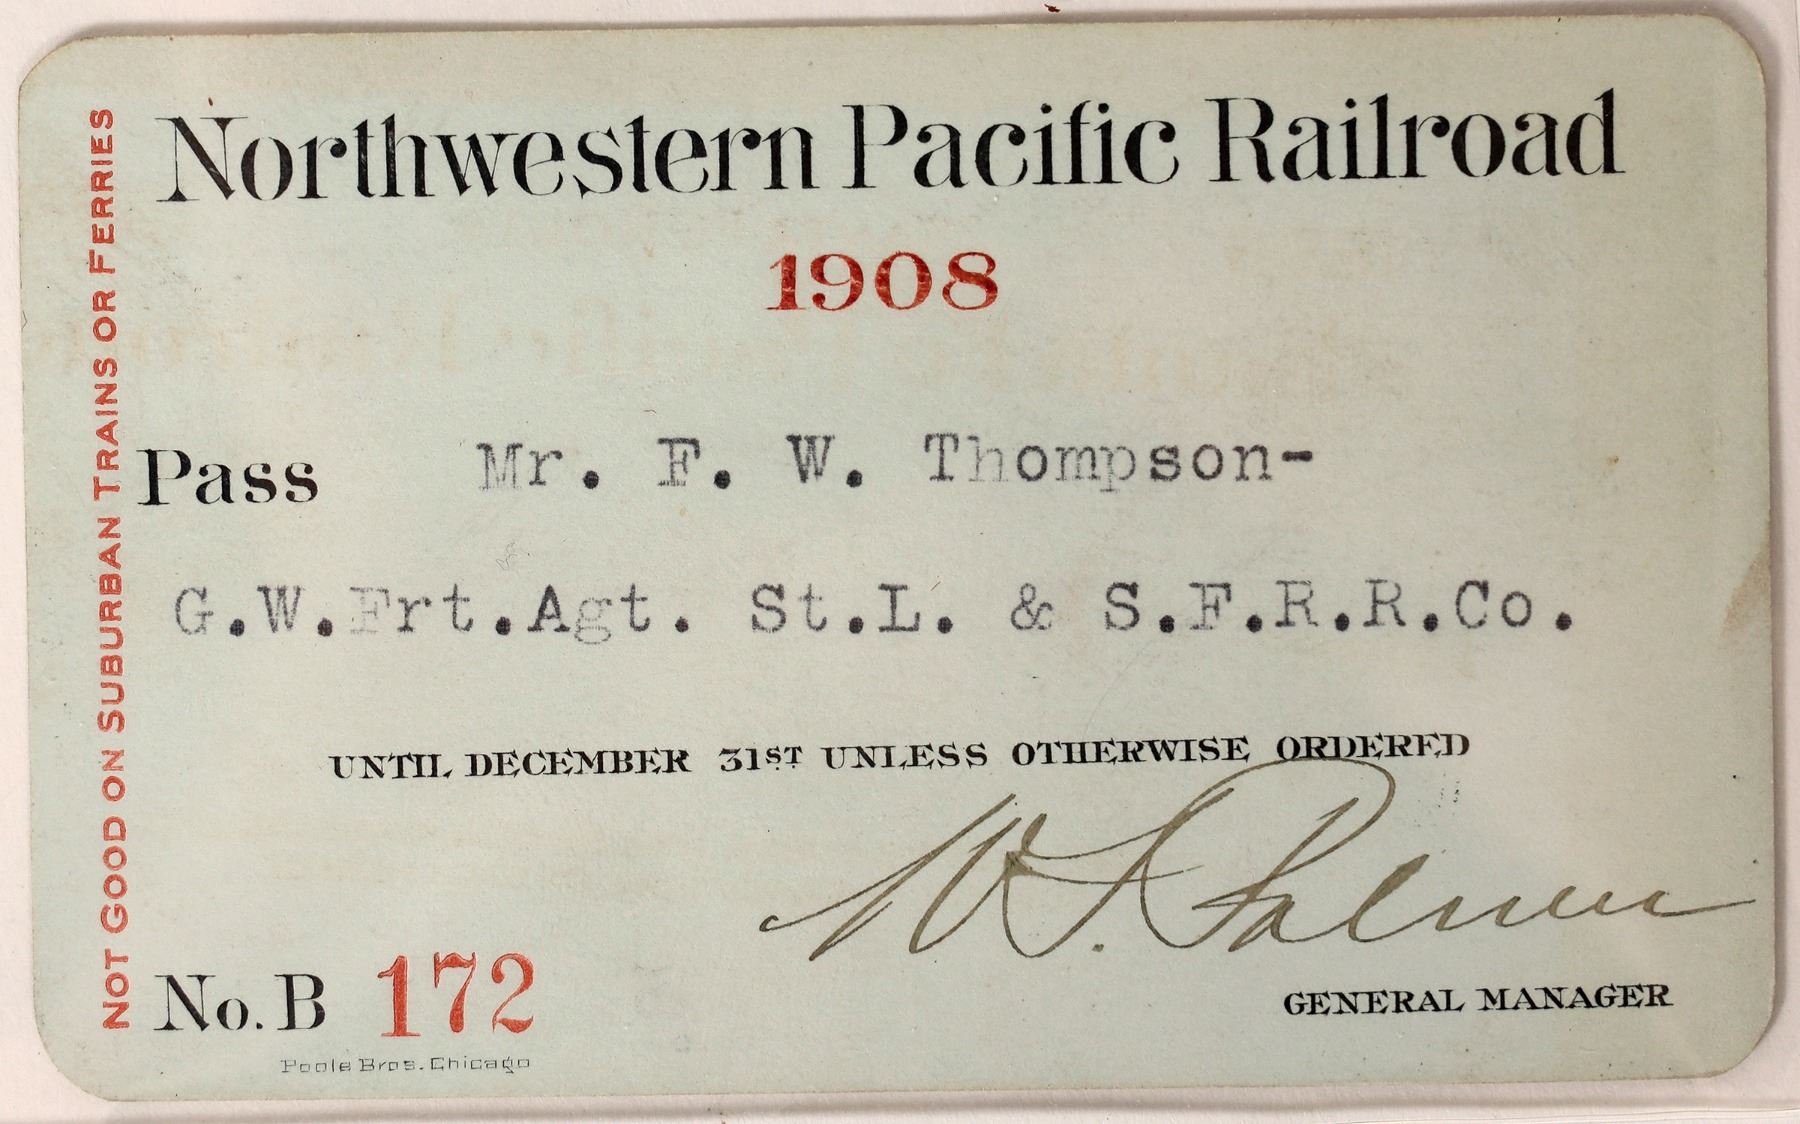 Northwestern Pacific Railroad
1908
Pass Mr. F. W. Thompson-
G.W.Frt.Agt. St.L. & S.F.R.R.Co.
UNTIL DECEMBER 31ST UNLESS OTHERWISE ORDERED
W. S. Palmer
GENERAL MANAGER
No. B 172
Poole Bros. Chicago
NOT GOOD ON SUBURBAN TRAINS OR FERRIES